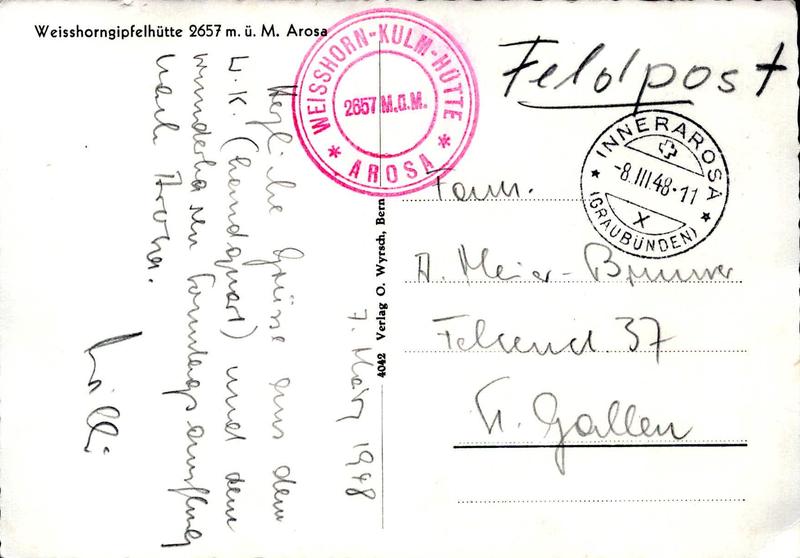 Weisshorngipfelhütte 2657 m. ü. M. Arosa
WEISSHORN-KULM-HÜTTE
2657 M.Ü.M.
* AROSA *
Feldpost
INNERAROSA
-8.III.48-11
X
(GRAUBÜNDEN)
7. März 1948
Herzliche Grüsse aus dem
W.K. (Landquart) und dem
wunderbaren Sonntagsausflug
nach Arosa.
Willi
4042 Verlag O. Wyrsch, Bern
Fam.
A. Meier-Brunner
Felsend. 37
St. Gallen